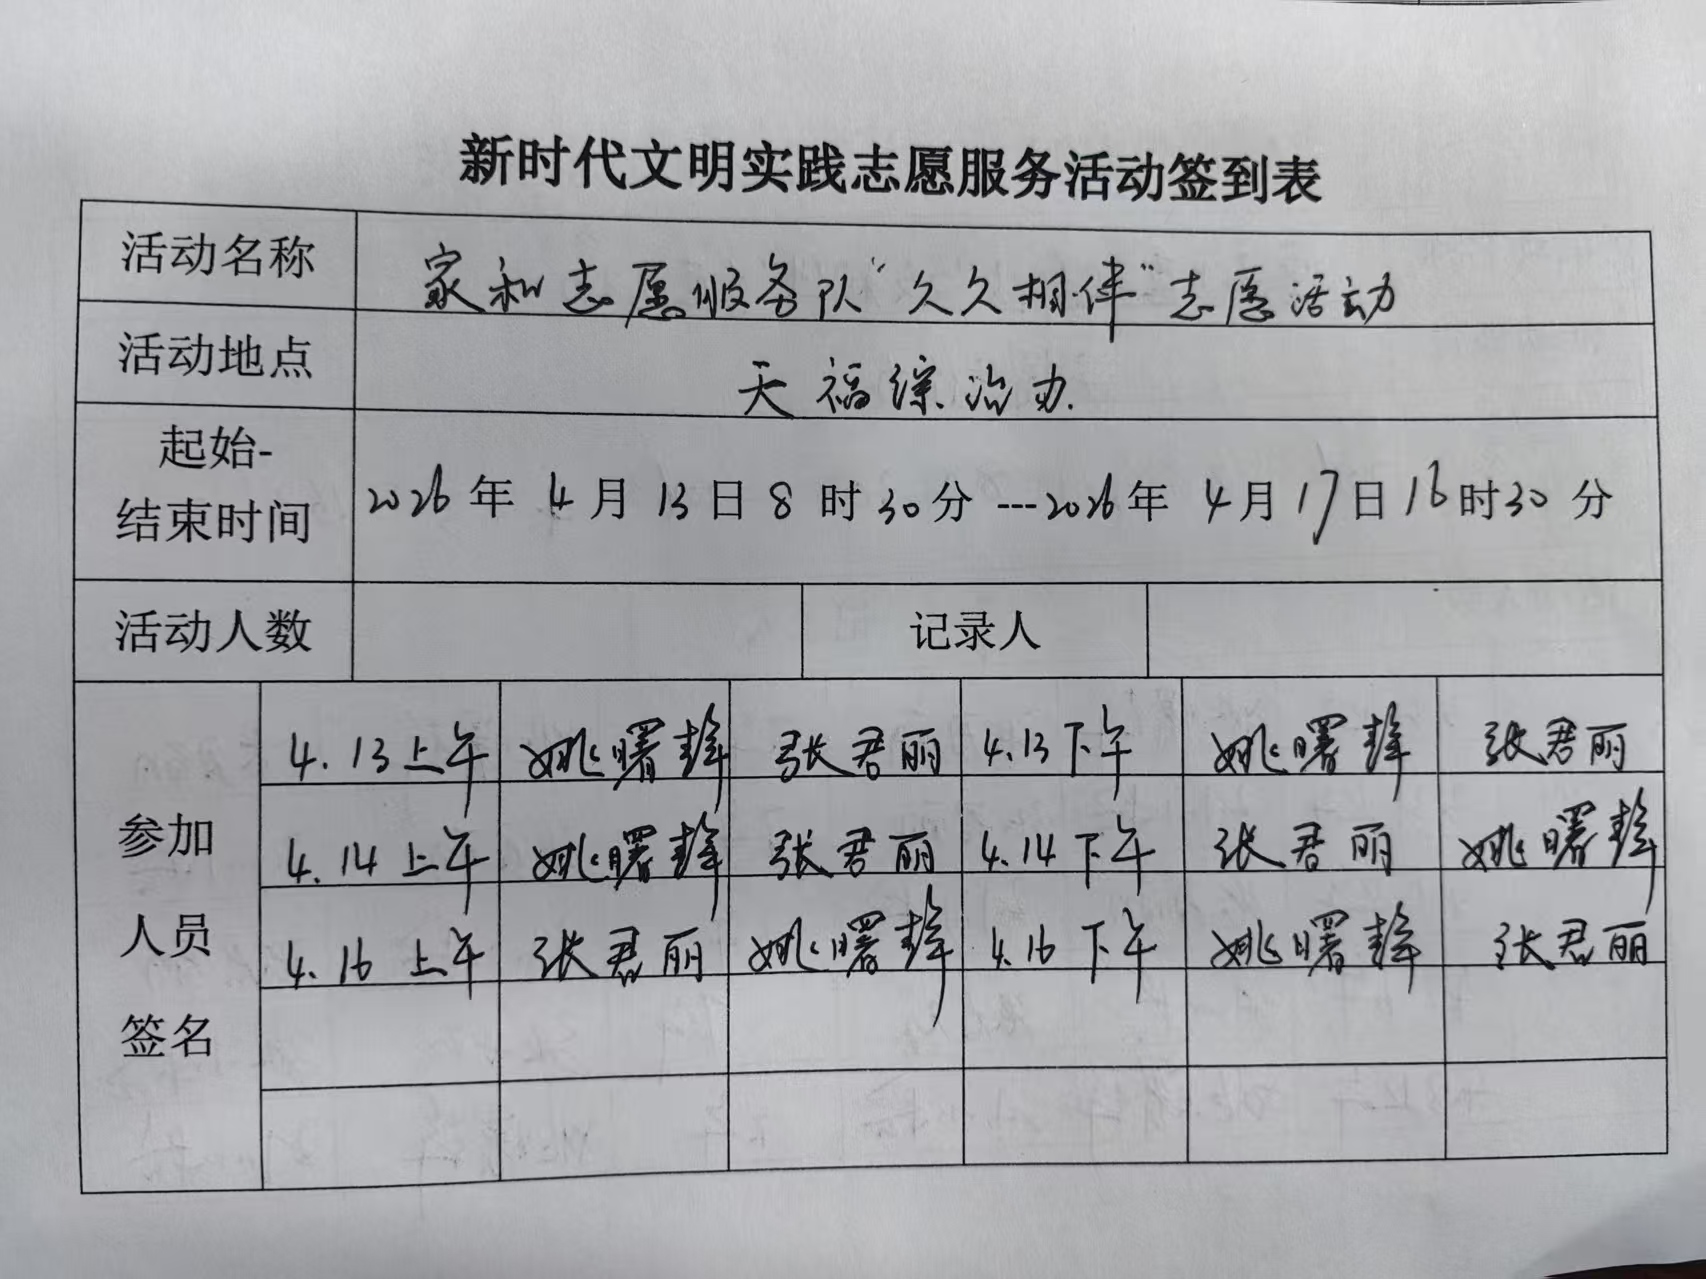 新时代文明实践志愿服务活动签到表
活动名称 家和志愿服务队“久久相伴”志愿活动
活动地点 天福综治办.
起始-
结束时间 2026年 4月 13日 8 时 30分 ---2026年 4月 17日 16时30 分
活动人数 记录人
参加
人员
签名
4.13上午 姚曙 张君丽 4.13下午 姚曙 张君丽
4.14上午 姚曙 张君丽 4.14下午 张君丽 姚曙
4.16上午 张君丽 姚曙 4.16下午 姚曙 张君丽